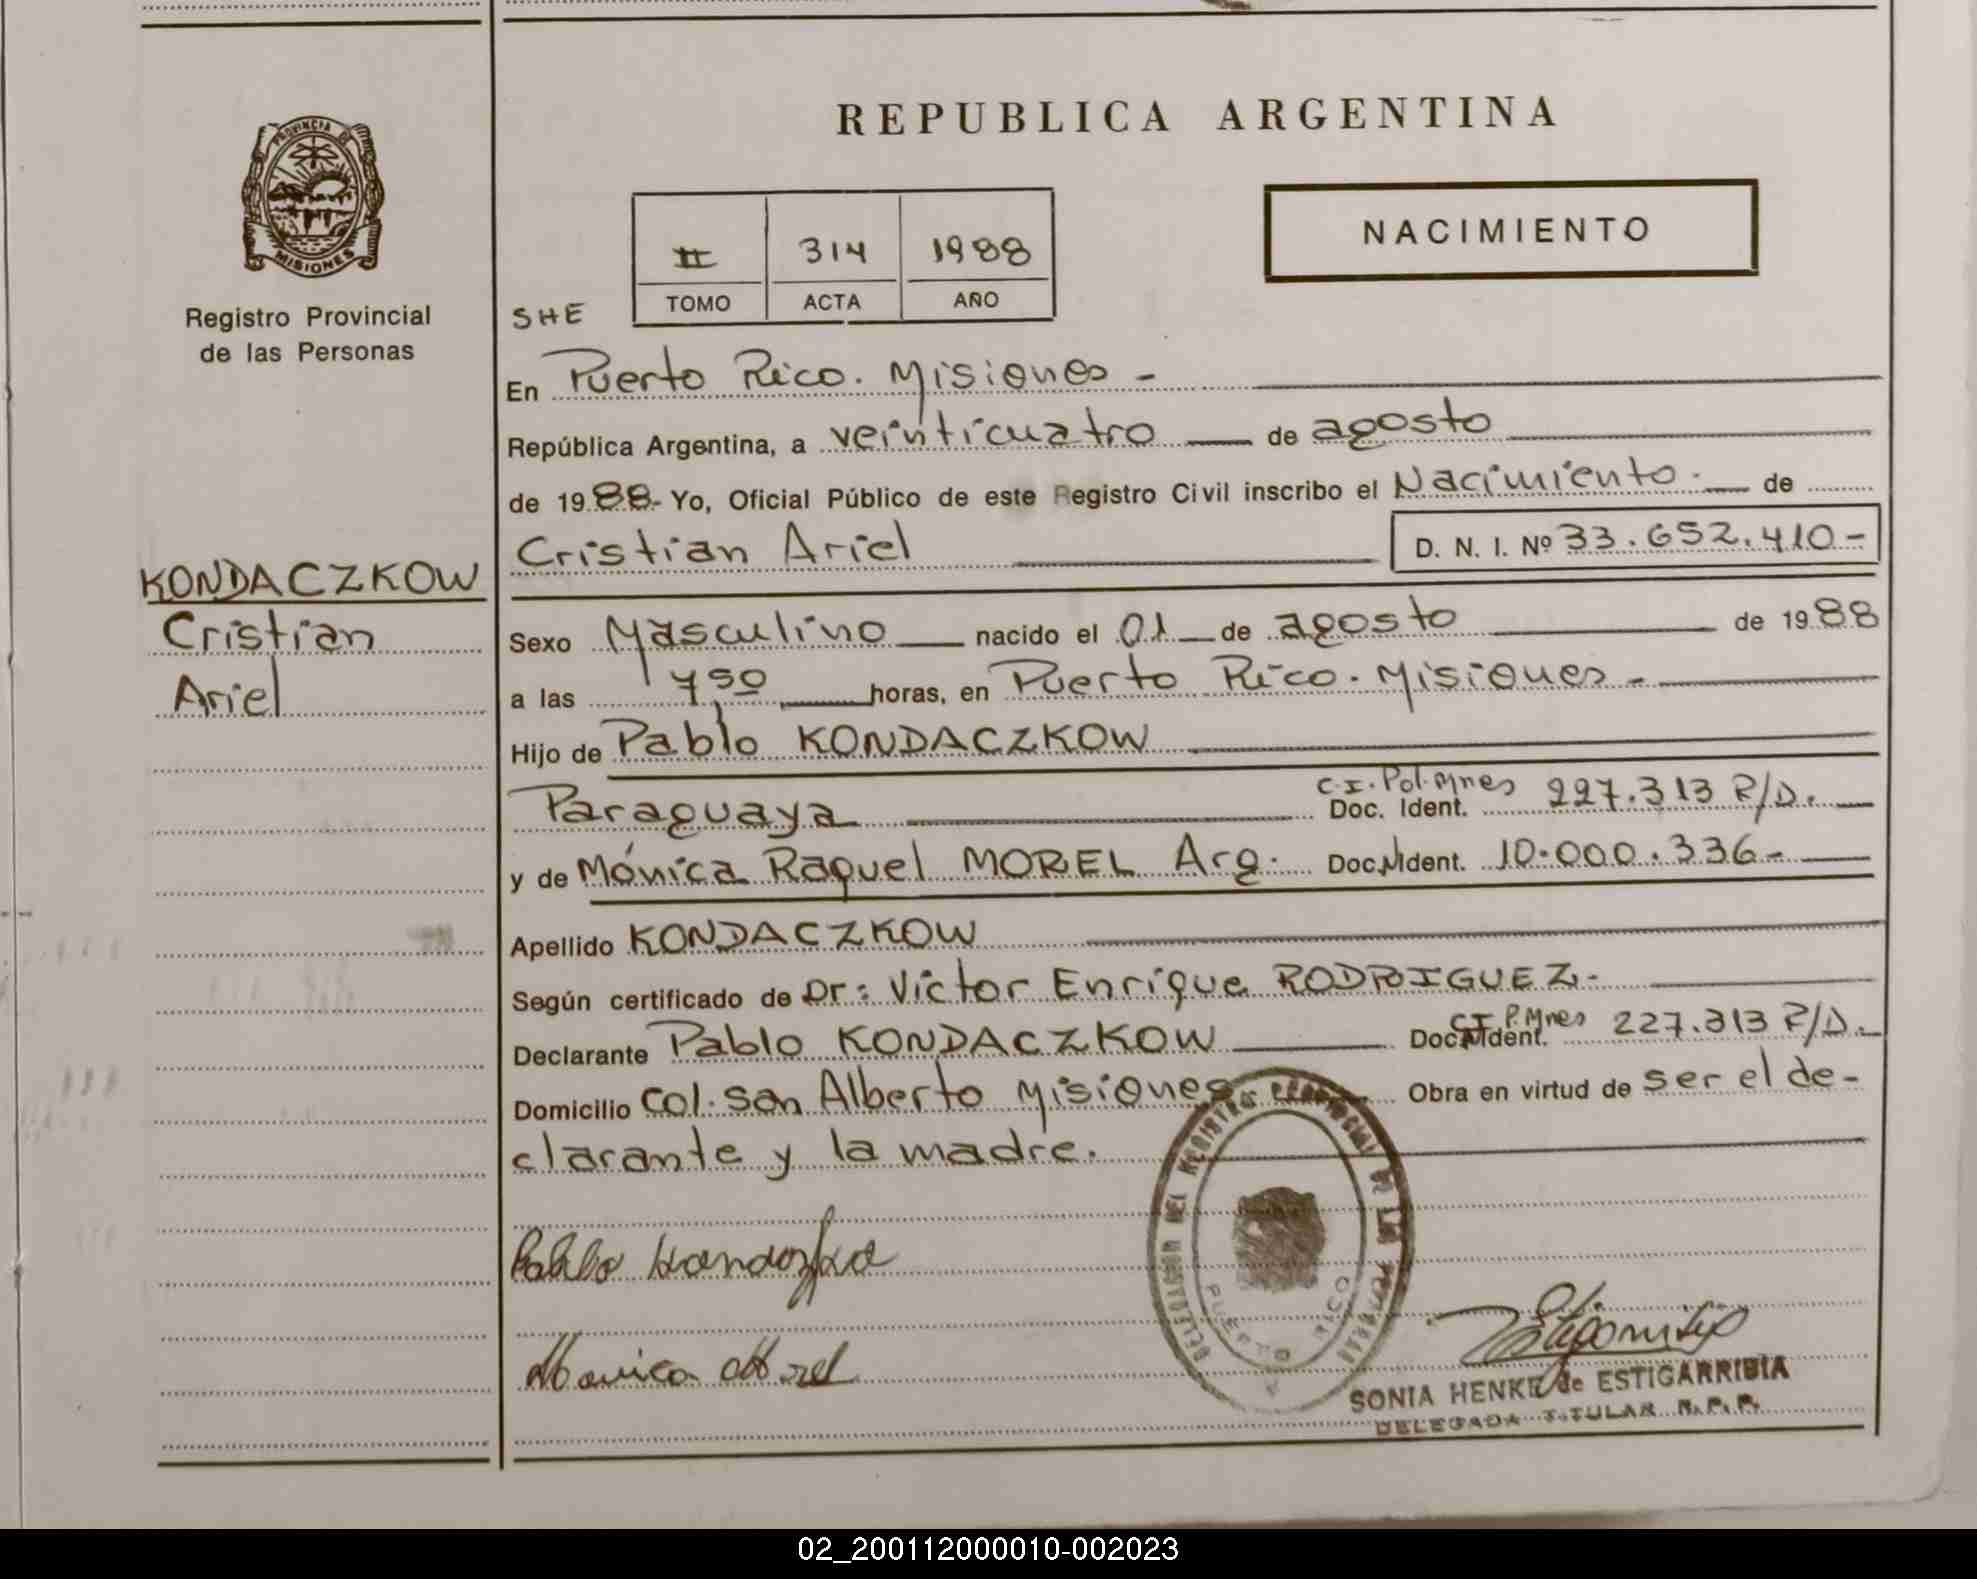 REPUBLICA ARGENTINA
PROVINCIA DE
MISIONES
Registro Provincial
de las Personas
II 314 1988
TOMO ACTA AÑO
NACIMIENTO
SHE
En Puerto Rico. Misiones -
República Argentina, a veinticuatro de agosto
de 1988- Yo, Oficial Público de este Registro Civil inscribo el Nacimiento. de
Cristian Ariel D. N. I. Nº 33.652.410-
KONDACZKOW
Cristian
Ariel
Sexo Masculino nacido el 01 de agosto de 1988
a las 750 horas, en Puerto Rico. Misiones -
Hijo de Pablo KONDACZKOW
Paraguaya C.I. Pol. Mnes Doc. Ident. 227.313 P/D.
y de Mónica Raquel MOREL Arg. Doc.NIdent. 10.000.336-
Apellido KONDACZKOW
Según certificado de Dr: Victor Enrique RODRIGUEZ-
Declarante Pablo KONDACZKOW Doc. Ident. CI P.Mnes 227.313 P/D.
Domicilio Col. San Alberto Misiones Obra en virtud de ser el de-
clarante y la madre.
DELEGACION DEL REGISTRO PROVINCIAL DE LAS PERSONAS
PUERTO RICO
Monica Morel
SONIA HENKE de ESTIGARRIBIA
DELEGADA TITULAR R.P.P.
02_200112000010-002023